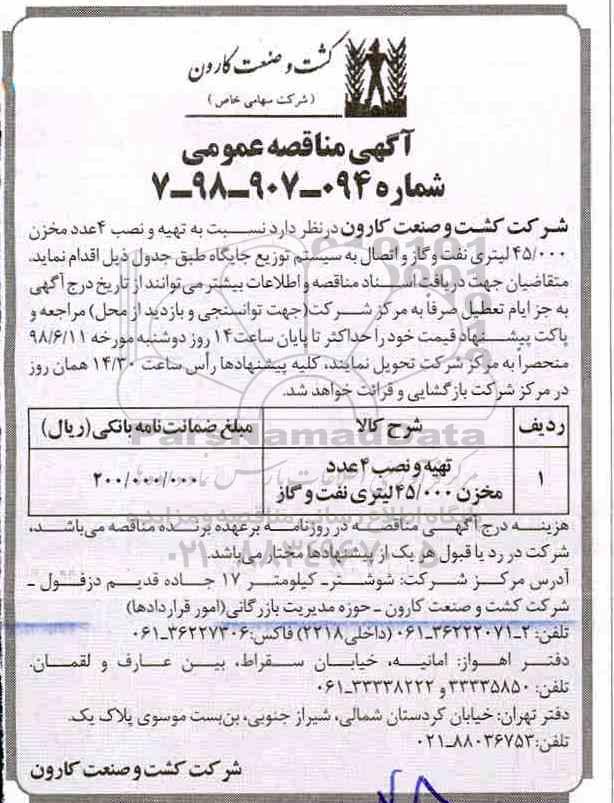 کشت و صنعت کارون
(شرکت سهامی خاص)
آگهی مناقصه عمومی
شماره ۰۹۴-۹۰۷-۹۸-۷
شرکت کشت و صنعت کارون در نظر دارد نسبت به تهیه و نصب ۴ عدد مخزن
۴۵/۰۰۰ لیتری نفت و گاز و اتصال به سیستم توزیع جایگاه طبق جدول ذیل اقدام نماید.
متقاضیان جهت دریافت اسناد مناقصه و اطلاعات بیشتر می‌توانند از تاریخ درج آگهی
به جز ایام تعطیل صرفاً به مرکز شرکت (جهت توانسنجی و بازدید از محل) مراجعه و
پاکت پیشنهاد قیمت خود را حداکثر تا پایان ساعت ۱۴ روز دوشنبه مورخه ۹۸/۶/۱۱
منحصراً به مرکز شرکت تحویل نمایند، کلیه پیشنهادها رأس ساعت ۱۴/۳۰ همان روز
در مرکز شرکت بازگشایی و قرائت خواهد شد.
ردیف شرح کالا مبلغ ضمانت‌نامه بانکی (ریال)
۱ تهیه و نصب ۴ عدد
مخزن ۴۵/۰۰۰ لیتری نفت و گاز ۲۰۰/۰۰۰/۰۰۰
ParsNamadData
هزینه درج آگهی مناقصه در روزنامه بر عهده برنده مناقصه می‌باشد،
شرکت در رد یا قبول هر یک از پیشنهادها مختار می‌باشد.
آدرس مرکز شرکت: شوشتر- کیلومتر ۱۷ جاده قدیم دزفول -
شرکت کشت و صنعت کارون - حوزه مدیریت بازرگانی (امور قراردادها)
تلفن: ۲-۳۶۲۲۲۰۷۱-۰۶۱ (داخلی ۲۲۱۸) فاکس: ۳۶۲۲۷۳۰۶-۰۶۱
دفتر اهواز: امانیه، خیابان سقراط، بین عارف و لقمان.
تلفن: ۳۳۳۳۵۸۵۰ و ۳۳۳۳۸۲۲۲-۰۶۱
دفتر تهران: خیابان کردستان شمالی، شیراز جنوبی، بن‌بست موسوی پلاک یک.
تلفن: ۸۸۰۳۶۷۵۳-۰۲۱
شرکت کشت و صنعت کارون